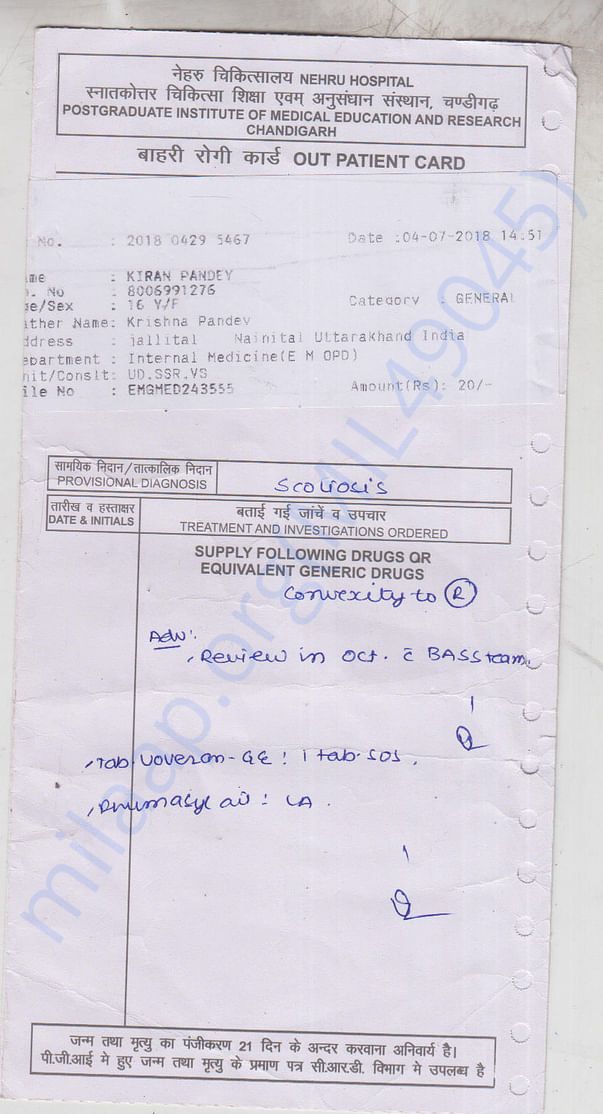 नेहरु चिकित्सालय NEHRU HOSPITAL
स्नातकोत्तर चिकित्सा शिक्षा एवम् अनुसंधान संस्थान, चण्डीगढ़
POSTGRADUATE INSTITUTE OF MEDICAL EDUCATION AND RESEARCH
CHANDIGARH
बाहरी रोगी कार्ड OUT PATIENT CARD
No. : 2018 0429 5467 Date :04-07-2018 14:51
me : KIRAN PANDEY
. No : 8006991276
e/Sex : 16 Y/F Category : GENERAL
ther Name: Krishna Pandey
ddress : jallital Nainital Uttarakhand India
epartment : Internal Medicine(E M OPD)
nit/Conslt: UD.SSR.VS
ile No : EMGMED243555 Amount(Rs): 20/-
सामयिक निदान/तात्कालिक निदान
PROVISIONAL DIAGNOSIS
Scoliosis
तारीख व हस्ताक्षर
DATE & INITIALS
बताई गई जांचें व उपचार
TREATMENT AND INVESTIGATIONS ORDERED
SUPPLY FOLLOWING DRUGS OR
EQUIVALENT GENERIC DRUGS
Convexity to R
Adv:
Review in Oct. c̄ BASS team.
Tab Voveran-GE : 1 tab. SOS.
: LA.
जन्म तथा मृत्यु का पंजीकरण 21 दिन के अन्दर करवाना अनिवार्य है।
पी.जी.आई मे हुए जन्म तथा मृत्यु के प्रमाण पत्र सी.आर.डी. विभाग मे उपलब्ध है
milaap.org(MIL49045)